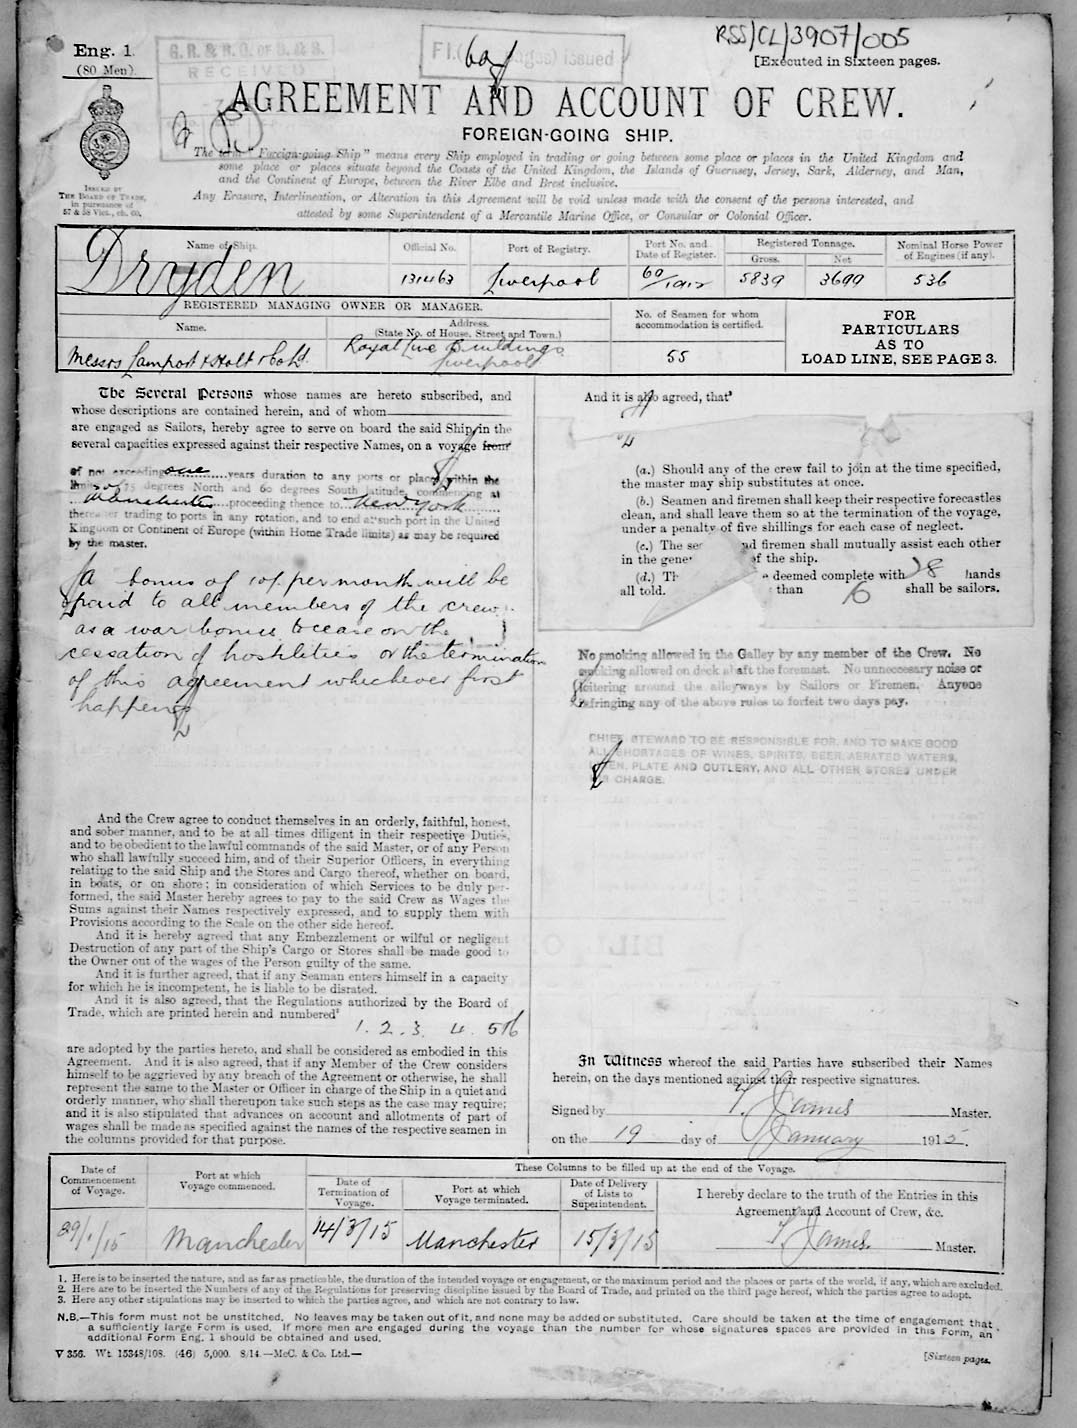 RSS/CL/3907/005
Eng. 1.
(80 Men).
G.R. & R.O. OF S. & S.
RECEIVED
Fl.(60 pages) issued
[Executed in Sixteen pages.
AGREEMENT AND ACCOUNT OF CREW.
FOREIGN-GOING SHIP.
The term "Foreign-going Ship" means every Ship employed in trading or going between some place or places in the United Kingdom and
some place or places situate beyond the Coasts of the United Kingdom, the Islands of Guernsey, Jersey, Sark, Alderney, and Man,
and the Continent of Europe, between the River Elbe and Brest inclusive.
Any Erasure, Interlineation, or Alteration in this Agreement will be void unless made with the consent of the persons interested, and
attested by some Superintendent of a Mercantile Marine Office, or Consular or Colonial Officer.
ISSUED BY
THE BOARD OF TRADE,
in pursuance of
57 & 58 Vict., ch. 60.
Name of Ship.
Official No.
Port of Registry.
Port No. and
Date of Register.
Registered Tonnage.
Gross.
Net
Nominal Horse Power
of Engines (if any).
Dryden
131463
Liverpool
60/1912
5839
3699
536
REGISTERED MANAGING OWNER OR MANAGER.
Name.
Address.
(State No. of House, Street and Town.)
No. of Seamen for whom
accommodation is certified.
FOR
PARTICULARS
AS TO
LOAD LINE, SEE PAGE 3.
Messrs Lamport & Holt Ld.
Royal Live Buildings
Liverpool
55
The Several Persons whose names are hereto subscribed, and
whose descriptions are contained herein, and of whom
are engaged as Sailors, hereby agree to serve on board the said Ship, in the
several capacities expressed against their respective Names, on a voyage from
of not exceeding one years duration to any ports or places within the
limits of 75 degrees North and 60 degrees South latitude, commencing at
Manchester proceeding thence to New York
thereafter trading to ports in any rotation, and to end at such port in the United
Kingdom or Continent of Europe (within Home Trade limits) as may be required
by the master.
A bonus of 10/. per month will be
paid to all members of the crew
as a war bonus to cease on the
cessation of hostilities or the termination
of this agreement whichever first
happens
And the Crew agree to conduct themselves in an orderly, faithful, honest,
and sober manner, and to be at all times diligent in their respective Duties,
and to be obedient to the lawful commands of the said Master, or of any Person
who shall lawfully succeed him, and of their Superior Officers, in everything
relating to the said Ship and the Stores and Cargo thereof, whether on board,
in boats, or on shore; in consideration of which Services to be duly per-
formed, the said Master hereby agrees to pay to the said Crew as Wages the
Sums against their Names respectively expressed, and to supply them with
Provisions according to the Scale on the other side hereof.
And it is hereby agreed that any Embezzlement or wilful or negligent
Destruction of any part of the Ship's Cargo or Stores shall be made good to
the Owner out of the wages of the Person guilty of the same.
And it is further agreed, that if any Seaman enters himself in a capacity
for which he is incompetent, he is liable to be disrated.
And it is also agreed, that the Regulations authorized by the Board of
Trade, which are printed herein and numbered²
1. 2. 3. 4. 5 & 6
are adopted by the parties hereto, and shall be considered as embodied in this
Agreement. And it is also agreed, that if any Member of the Crew considers
himself to be aggrieved by any breach of the Agreement or otherwise, he shall
represent the same to the Master or Officer in charge of the Ship in a quiet and
orderly manner, who shall thereupon take such steps as the case may require;
and it is also stipulated that advances on account and allotments of part of
wages shall be made as specified against the names of the respective seamen in
the columns provided for that purpose.
And it is also agreed, that³
(a.) Should any of the crew fail to join at the time specified,
the master may ship substitutes at once.
(b.) Seamen and firemen shall keep their respective forecastles
clean, and shall leave them so at the termination of the voyage,
under a penalty of five shillings for each case of neglect.
(c.) The se nd firemen shall mutually assist each other
in the gene of the ship.
(d.) Th e deemed complete with 28 hands
all told. than 16 shall be sailors.
No smoking allowed in the Galley by any member of the Crew. No
smoking allowed on deck abaft the foremast. No unnecessary noise or
loitering around the alleyways by Sailors or Firemen. Anyone
infringing any of the above rules to forfeit two days pay.
CHIEF STEWARD TO BE RESPONSIBLE FOR, AND TO MAKE GOOD
ALL SHORTAGES OF WINES, SPIRITS, BEER, AERATED WATERS,
LINEN, PLATE AND CUTLERY, AND ALL OTHER STORES UNDER
HIS CHARGE.
In Witness whereof the said Parties have subscribed their Names
herein, on the days mentioned against their respective signatures.
Signed by T. James Master.
on the 19 day of January 1915.
Date of
Commencement
of Voyage.
Port at which
Voyage commenced.
These Columns to be filled up at the end of the Voyage.
Date of
Termination of
Voyage.
Port at which
Voyage terminated.
Date of Delivery
of Lists to
Superintendent.
I hereby declare to the truth of the Entries in this
Agreement and Account of Crew, &c.
T. James. Master.
29/1/15
Manchester
14/3/15
Manchester
15/3/15
1. Here is to be inserted the nature, and as far as practicable, the duration of the intended voyage or engagement, or the maximum period and the places or parts of the world, if any, which are excluded.
2. Here are to be inserted the Numbers of any of the Regulations for preserving discipline issued by the Board of Trade, and printed on the third page hereof, which the parties agree to adopt.
3. Here any other stipulations may be inserted to which the parties agree, and which are not contrary to law.
N.B.—This form must not be unstitched. No leaves may be taken out of it, and none may be added or substituted. Care should be taken at the time of engagement that
a sufficiently large Form is used. If more men are engaged during the voyage than the number for whose signatures spaces are provided in this Form, an
additional Form Eng. 1 should be obtained and used.
V 356. Wt. 15348/108. (46) 5,000. 8/14.—McC. & Co. Ltd.—
[Sixteen pages.